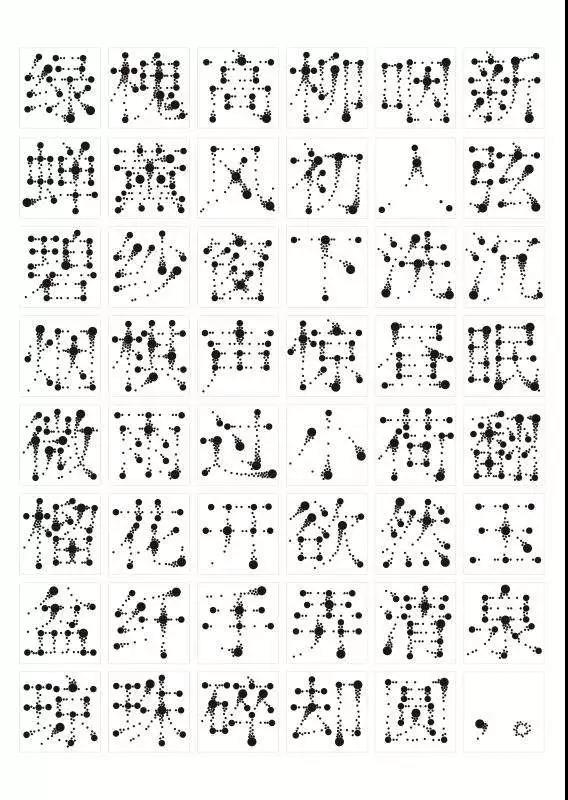 绿槐高柳咽新
蝉薰风初入弦
碧纱窗下洗沉
烟棋声惊昼眠
微雨过小荷翻
榴花开欲然玉
盆纤手弄清泉
琼珠碎却圆,。